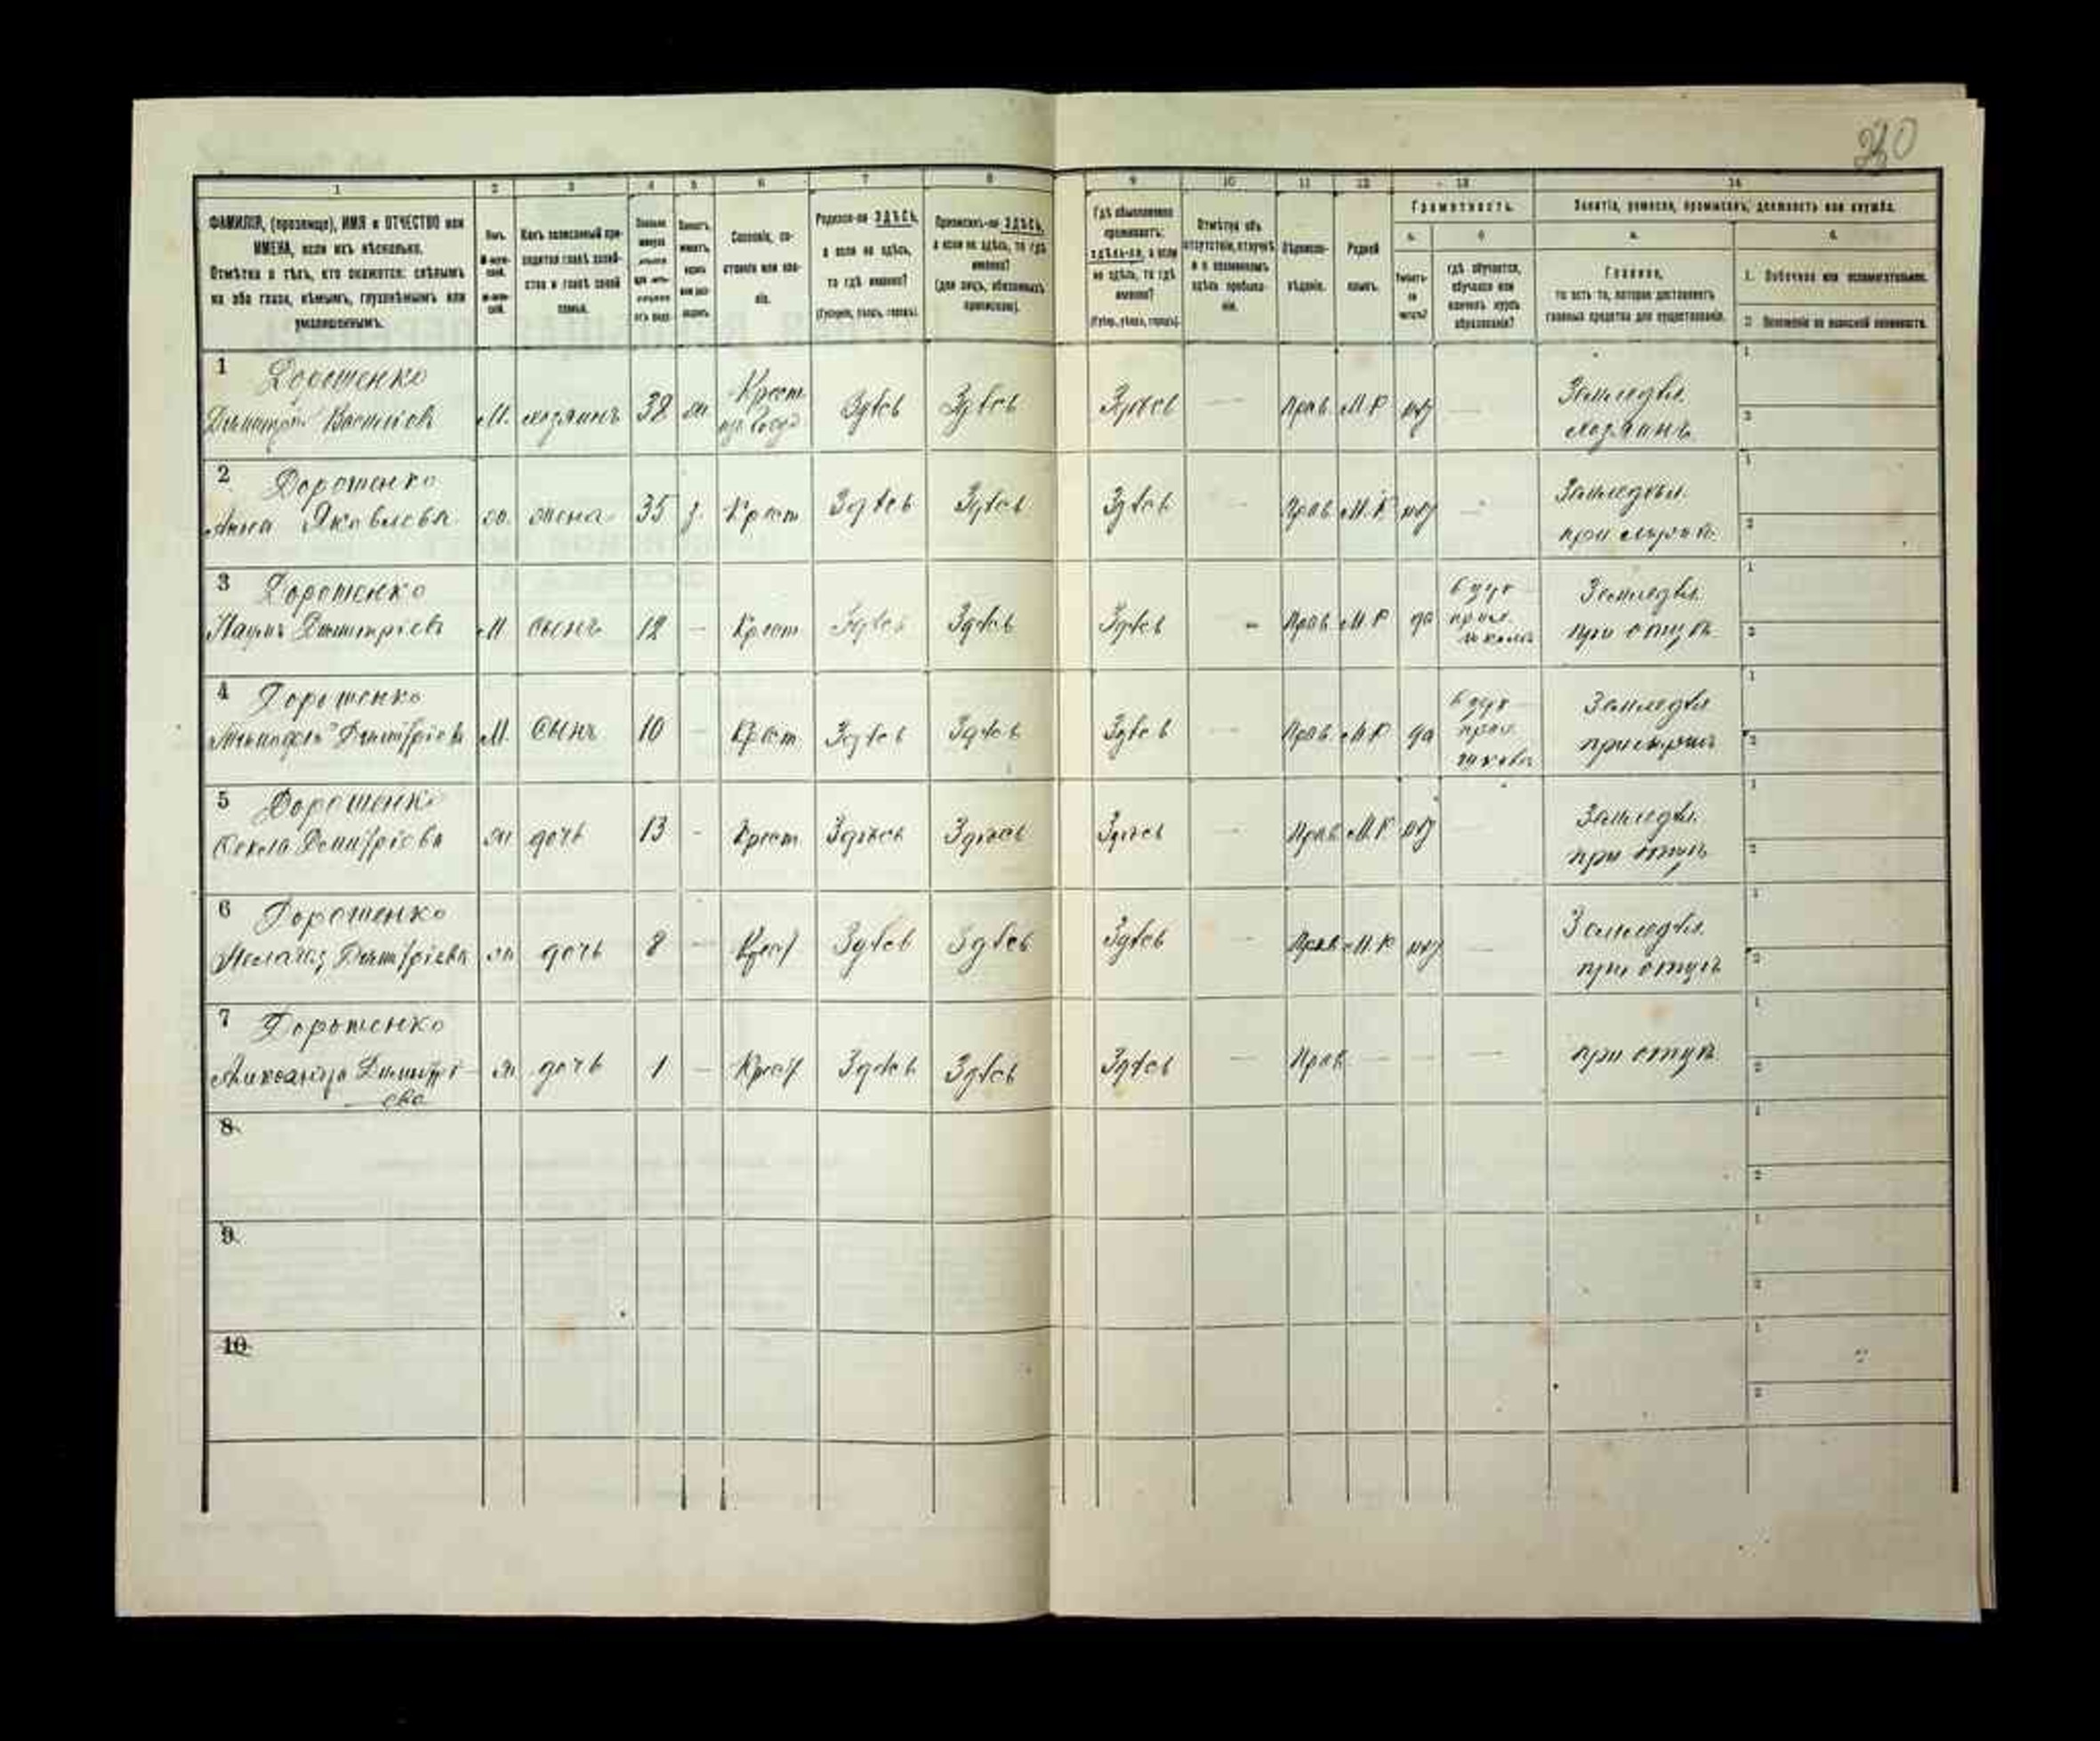 230
1 2 3 4 5 6 7 8 9 10 11 12 13 14
ФАМИЛІЯ, (прозвище), ИМЯ и ОТЧЕСТВО или
ИМЕНА, если ихъ нѣсколько.
Отмѣтка о тѣхъ, кто окажется: слѣпымъ
на оба глаза, нѣмымъ, глухонѣмымъ или
умалишеннымъ.
Полъ.
Какъ записанный при-
ходится главѣ хозяй-
ства и главѣ своей
семьи.
Сословіе, со-
стояніе или зва-
ніе.
Родился-ли ЗДѢСЬ,
а если не здѣсь,
то гдѣ именно?
(Губернія, уѣздъ, городъ).
Приписанъ-ли ЗДѢСЬ,
а если не здѣсь, то гдѣ
именно?
(для лицъ, обязанныхъ
припискою).
Гдѣ обыкновенно
проживаетъ:
здѣсь-ли, а если
не здѣсь, то гдѣ
именно?
(Губер., уѣздъ, городъ).
Отмѣтка объ
отсутствіи, отлучкѣ
и о временномъ
здѣсь пребыва-
ніи.
Вѣроиспо-
вѣданіе.
Родной
языкъ.
Грамотность.
а. б.
Умѣетъ-
ли
читать?
гдѣ обучается,
обучался или
кончилъ курсъ
образованія?
Занятіе, ремесло, промыселъ, должность или служба.
а. б.
Главное,
то есть то, которое доставляетъ
главныя средства для существованія.
1. Побочное или вспомогательное.
2. Положеніе по воинской повинности.
1 Дорошенко
Димитрій Васильевъ М. хозяинъ 38 Крест Здѣсь Здѣсь Здѣсь — Прав. М.Р. нѣт — Земледѣл.
хозяинъ
2 Дорошенко
Анна Яковлева ж. жена 35 Крест Здѣсь Здѣсь Здѣсь — Прав. М.Р. нѣт — Земледѣл.
при мужѣ
3 Дорошенко
Наумъ Димитріевъ М сынъ 12 — Крест Здѣсь Здѣсь Здѣсь — Прав. М.Р да школѣ Земледѣл.
при отцѣ
4 Дорошенко
Димитріевъ М. сынъ 10 — Крест Здѣсь Здѣсь Здѣсь — Прав. М.Р. да Земледѣл
5 Дорошенко
Фекла Димитріева ж дочь 13 — Крест Здѣсь Здѣсь Здѣсь — Прав. М.Р нѣт — Земледѣл.
при отцѣ
6 Дорошенко
Пелагея Димитріева ж дочь 8 — Крест Здѣсь Здѣсь Здѣсь — Прав. М.Р нѣт — Земледѣл.
при отцѣ
7 Дорошенко
Александра Димитрі- ж дочь 1 — Крест Здѣсь Здѣсь Здѣсь — Прав. — — — при отцѣ
ева
8
9
10